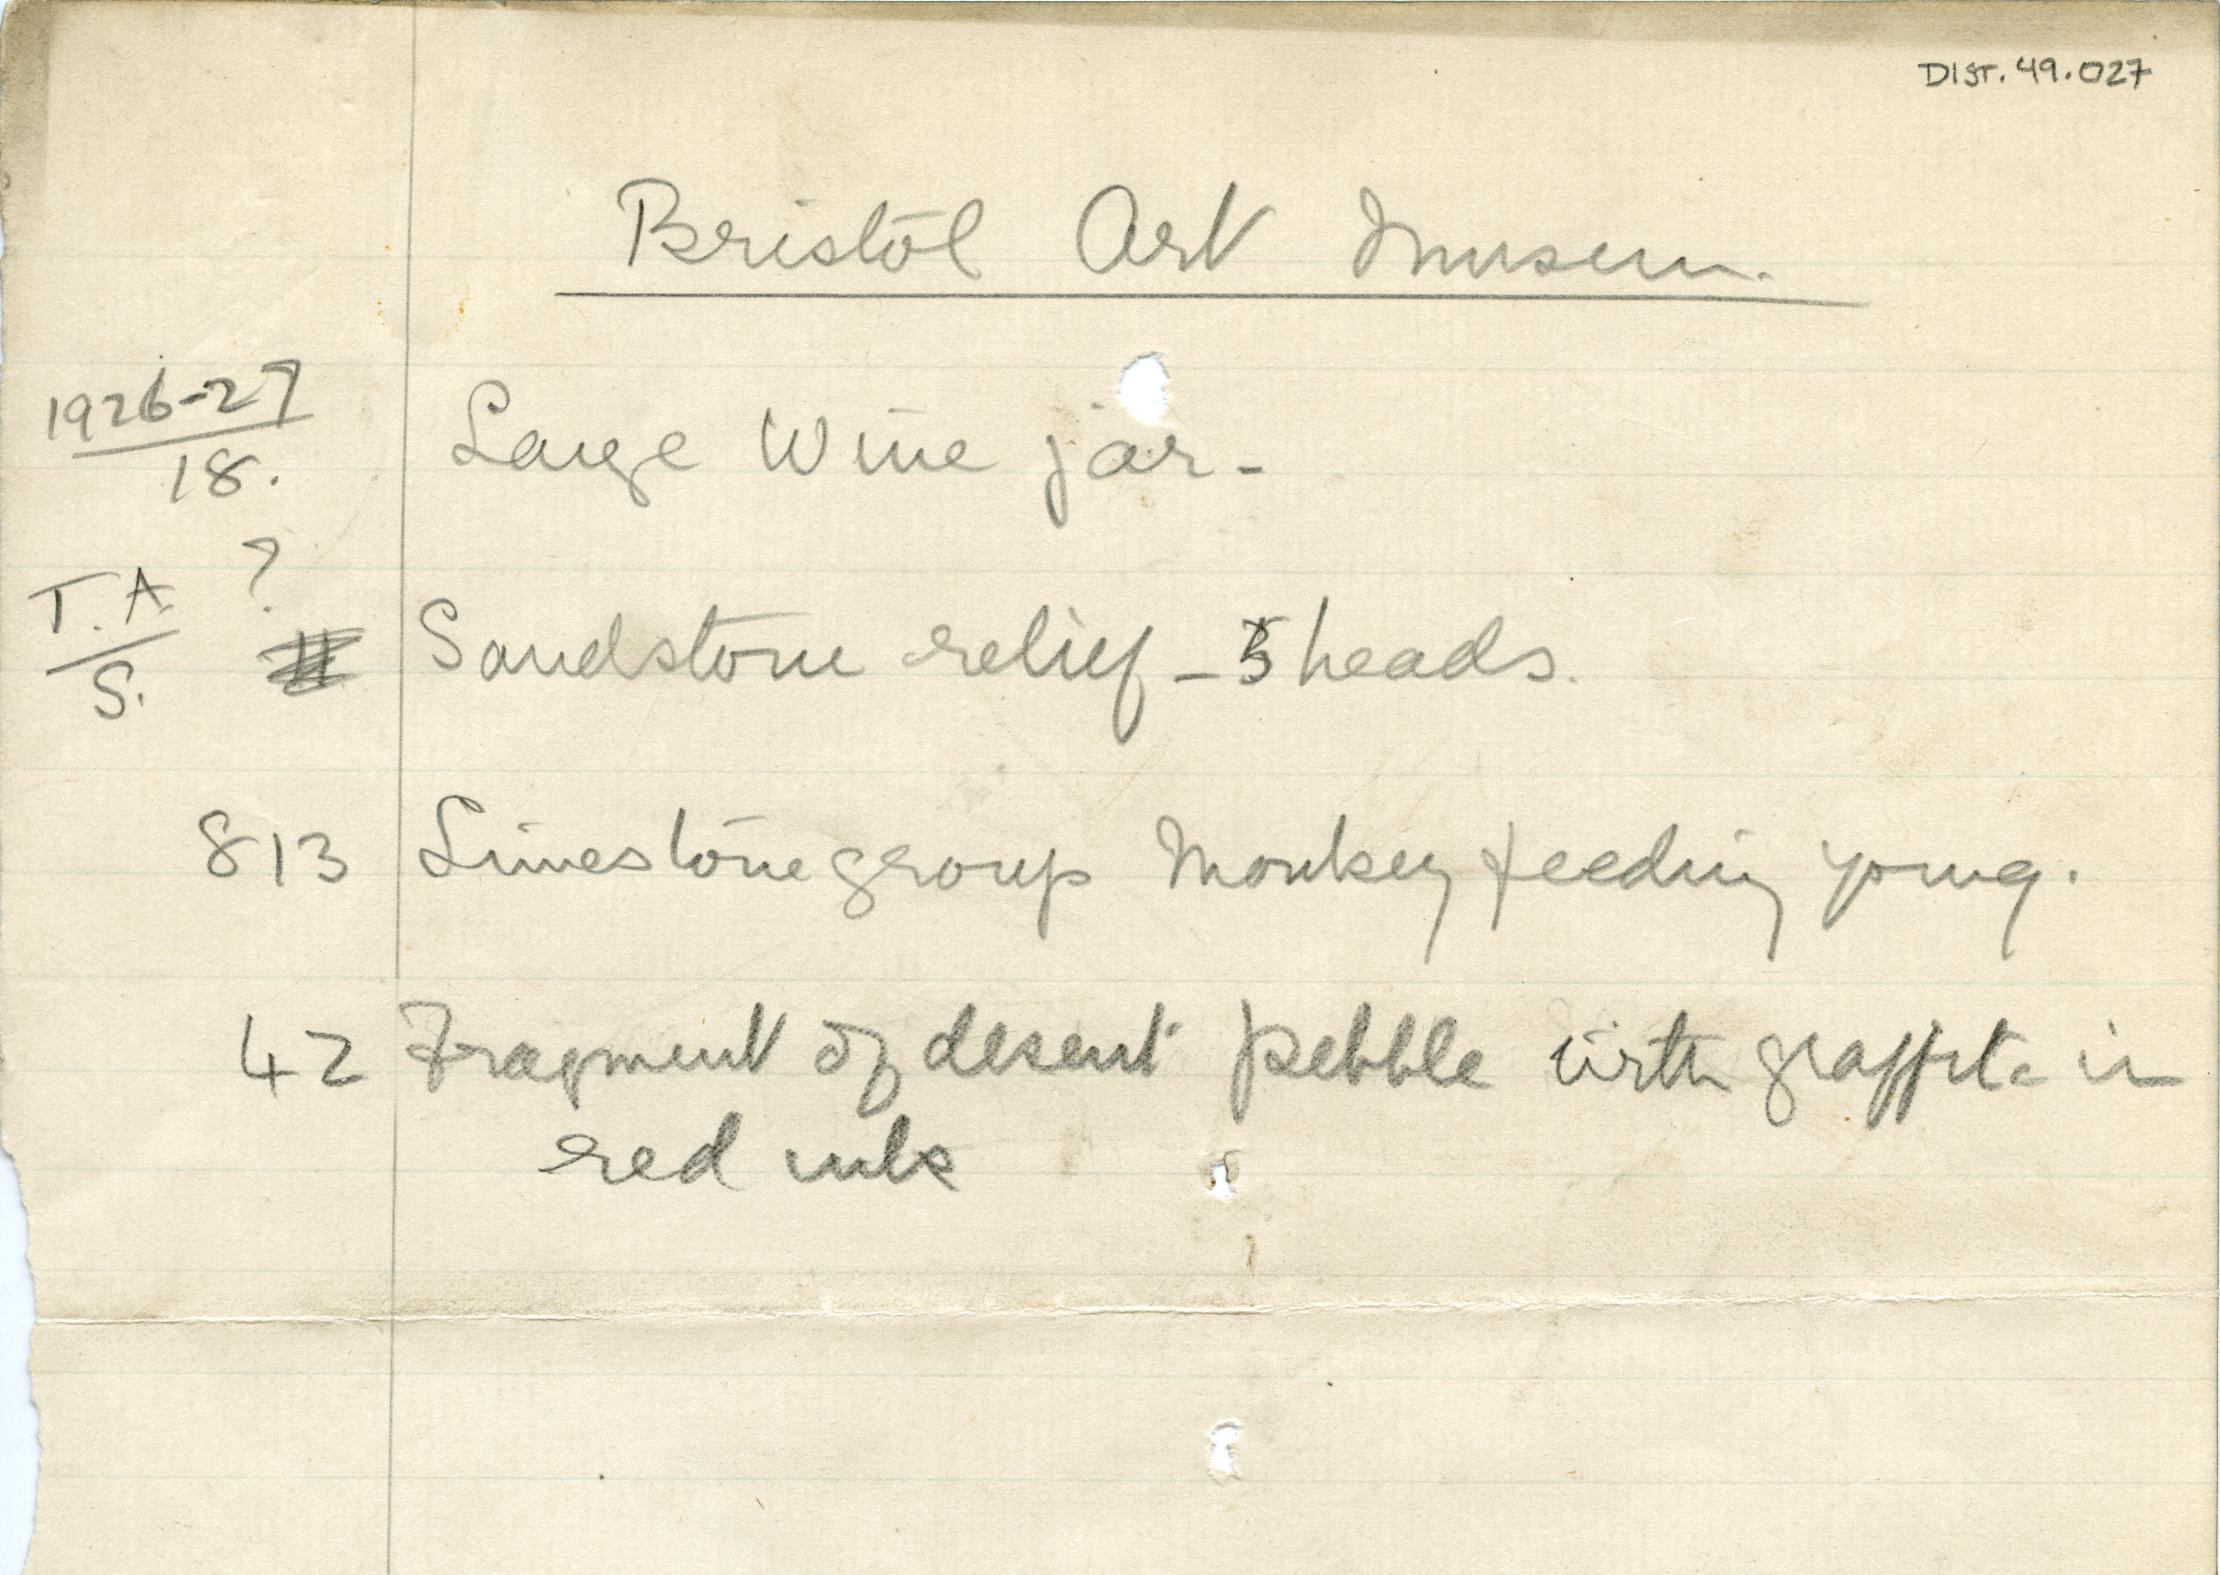 DIST. 49.027
Bristol Art Museum.
1926-27
18. Large Wine jar-
T.A. ?
S. Sandstone relief - heads.
813 Limestone group Monkey feeding young.
42 Fragment of desert pebble with in
red ink